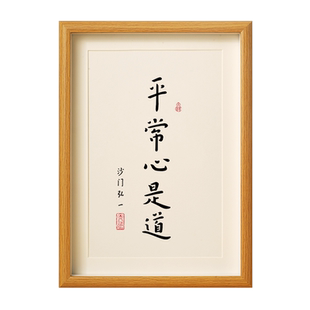 平常心是道
沙门弘一